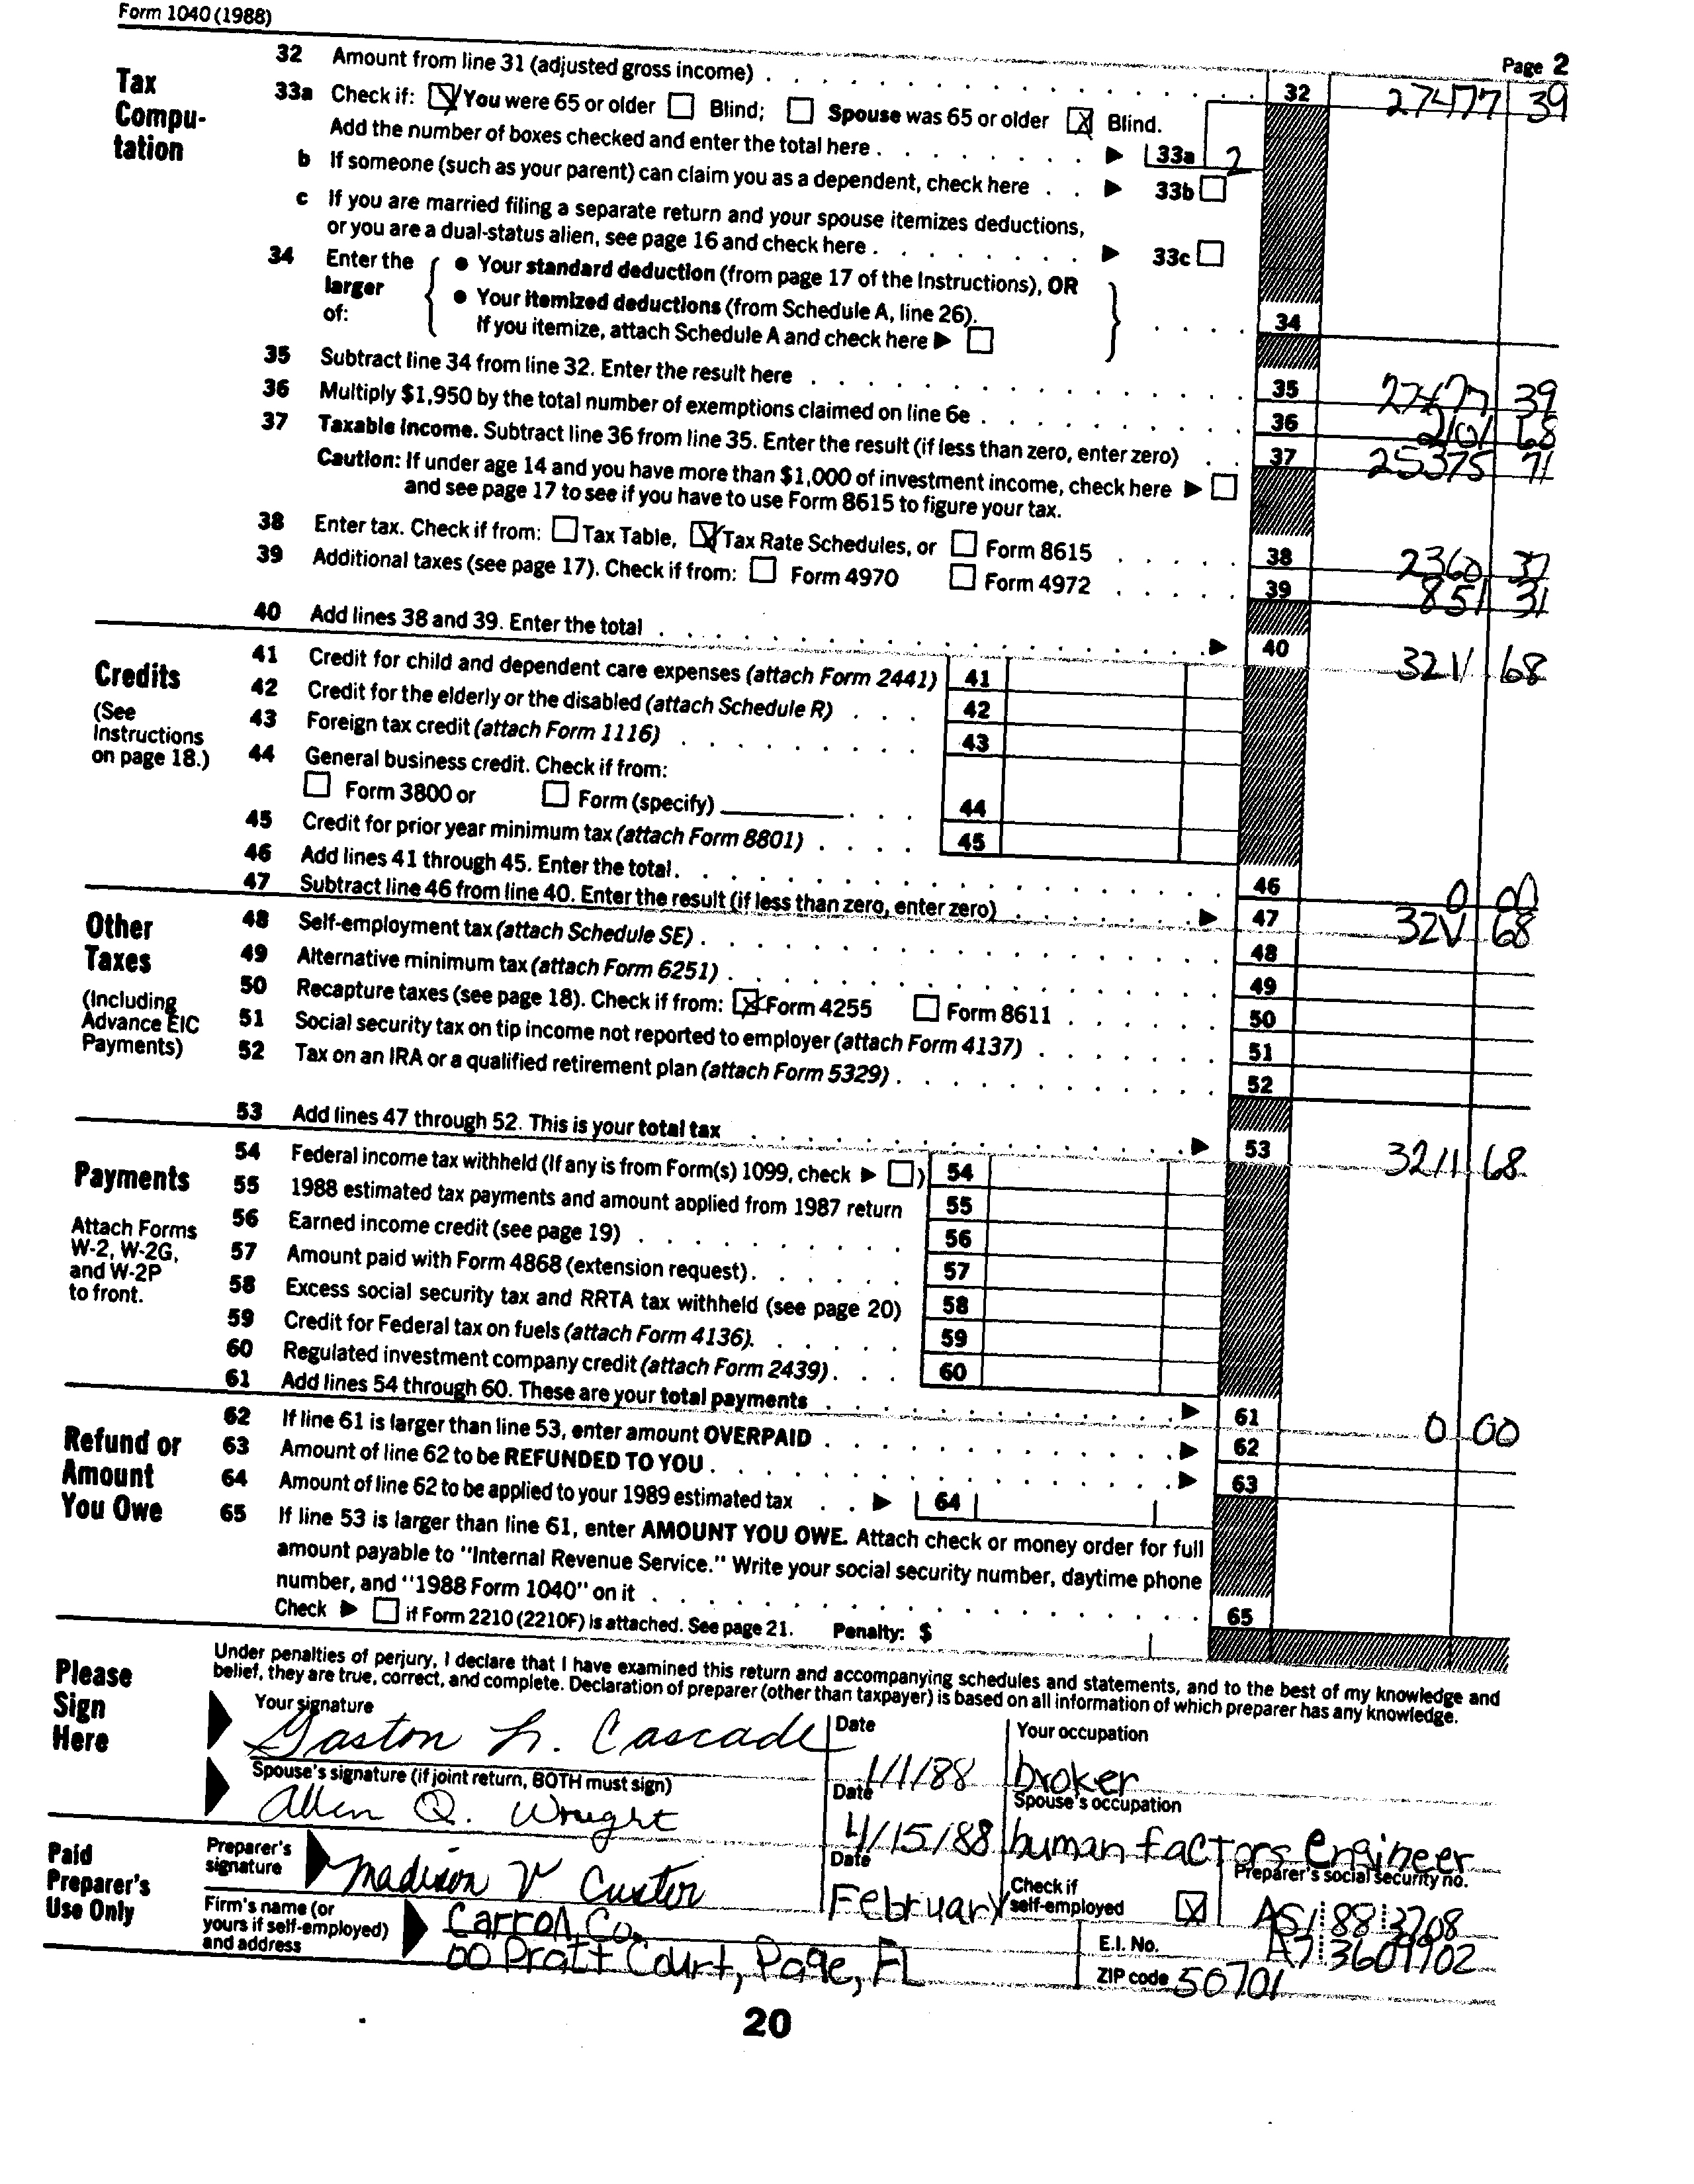 Form 1040 (1988)
Page 2
Tax Compu-tation
32 Amount from line 31 (adjusted gross income) 32 27477 39
33a Check if: ☒ You were 65 or older ☐ Blind; ☐ Spouse was 65 or older ☒ Blind.
Add the number of boxes checked and enter the total here ▶ 33a 2
b If someone (such as your parent) can claim you as a dependent, check here ▶ 33b ☐
c If you are married filing a separate return and your spouse itemizes deductions,
or you are a dual-status alien, see page 16 and check here ▶ 33c ☐
34 Enter the larger of:
• Your standard deduction (from page 17 of the Instructions), OR
• Your itemized deductions (from Schedule A, line 26).
If you itemize, attach Schedule A and check here ▶ ☐ 34
35 Subtract line 34 from line 32. Enter the result here 35 27477 39
36 Multiply $1,950 by the total number of exemptions claimed on line 6e 36 2101 68
37 Taxable income. Subtract line 36 from line 35. Enter the result (if less than zero, enter zero) 37 25375 71
Caution: If under age 14 and you have more than $1,000 of investment income, check here ▶ ☐
and see page 17 to see if you have to use Form 8615 to figure your tax.
38 Enter tax. Check if from: ☐ Tax Table, ☒ Tax Rate Schedules, or ☐ Form 8615 38 2360 37
39 Additional taxes (see page 17). Check if from: ☐ Form 4970 ☐ Form 4972 39 851 31
40 Add lines 38 and 39. Enter the total ▶ 40 3211 68
Credits
(See Instructions on page 18.)
41 Credit for child and dependent care expenses (attach Form 2441) 41
42 Credit for the elderly or the disabled (attach Schedule R) 42
43 Foreign tax credit (attach Form 1116) 43
44 General business credit. Check if from:
☐ Form 3800 or ☐ Form (specify) 44
45 Credit for prior year minimum tax (attach Form 8801) 45
46 Add lines 41 through 45. Enter the total. 46 0 00
47 Subtract line 46 from line 40. Enter the result (if less than zero, enter zero) ▶ 47 3211 68
Other Taxes
(Including Advance EIC Payments)
48 Self-employment tax (attach Schedule SE) 48
49 Alternative minimum tax (attach Form 6251) 49
50 Recapture taxes (see page 18). Check if from: ☒ Form 4255 ☐ Form 8611 50
51 Social security tax on tip income not reported to employer (attach Form 4137) 51
52 Tax on an IRA or a qualified retirement plan (attach Form 5329) 52
53 Add lines 47 through 52. This is your total tax ▶ 53 3211 68
Payments
Attach Forms W-2, W-2G, and W-2P to front.
54 Federal income tax withheld (If any is from Form(s) 1099, check ▶ ☐) 54
55 1988 estimated tax payments and amount applied from 1987 return 55
56 Earned income credit (see page 19) 56
57 Amount paid with Form 4868 (extension request) 57
58 Excess social security tax and RRTA tax withheld (see page 20) 58
59 Credit for Federal tax on fuels (attach Form 4136). 59
60 Regulated investment company credit (attach Form 2439) 60
61 Add lines 54 through 60. These are your total payments ▶ 61 0 00
Refund or Amount You Owe
62 If line 61 is larger than line 53, enter amount OVERPAID ▶ 62
63 Amount of line 62 to be REFUNDED TO YOU ▶ 63
64 Amount of line 62 to be applied to your 1989 estimated tax ▶ 64
65 If line 53 is larger than line 61, enter AMOUNT YOU OWE. Attach check or money order for full
amount payable to "Internal Revenue Service." Write your social security number, daytime phone
number, and "1988 Form 1040" on it 65
Check ▶ ☐ if Form 2210 (2210F) is attached. See page 21. Penalty: $
Please Sign Here
Under penalties of perjury, I declare that I have examined this return and accompanying schedules and statements, and to the best of my knowledge and
belief, they are true, correct, and complete. Declaration of preparer (other than taxpayer) is based on all information of which preparer has any knowledge.
Your signature Date Your occupation
Gaston L. Cascade 1/1/88 broker
Spouse's signature (if joint return, BOTH must sign) Date Spouse's occupation
Allen Q. Wright 4/15/88 human factors engineer
Paid Preparer's Use Only
Preparer's signature Date Check if self-employed ☒ Preparer's social security no.
Madison V Custer February AS1 88 3708
Firm's name (or yours if self-employed) and address
Carron Co. E.I. No. A7 3609902
00 Pratt Court, Page, FL ZIP code 50701
20